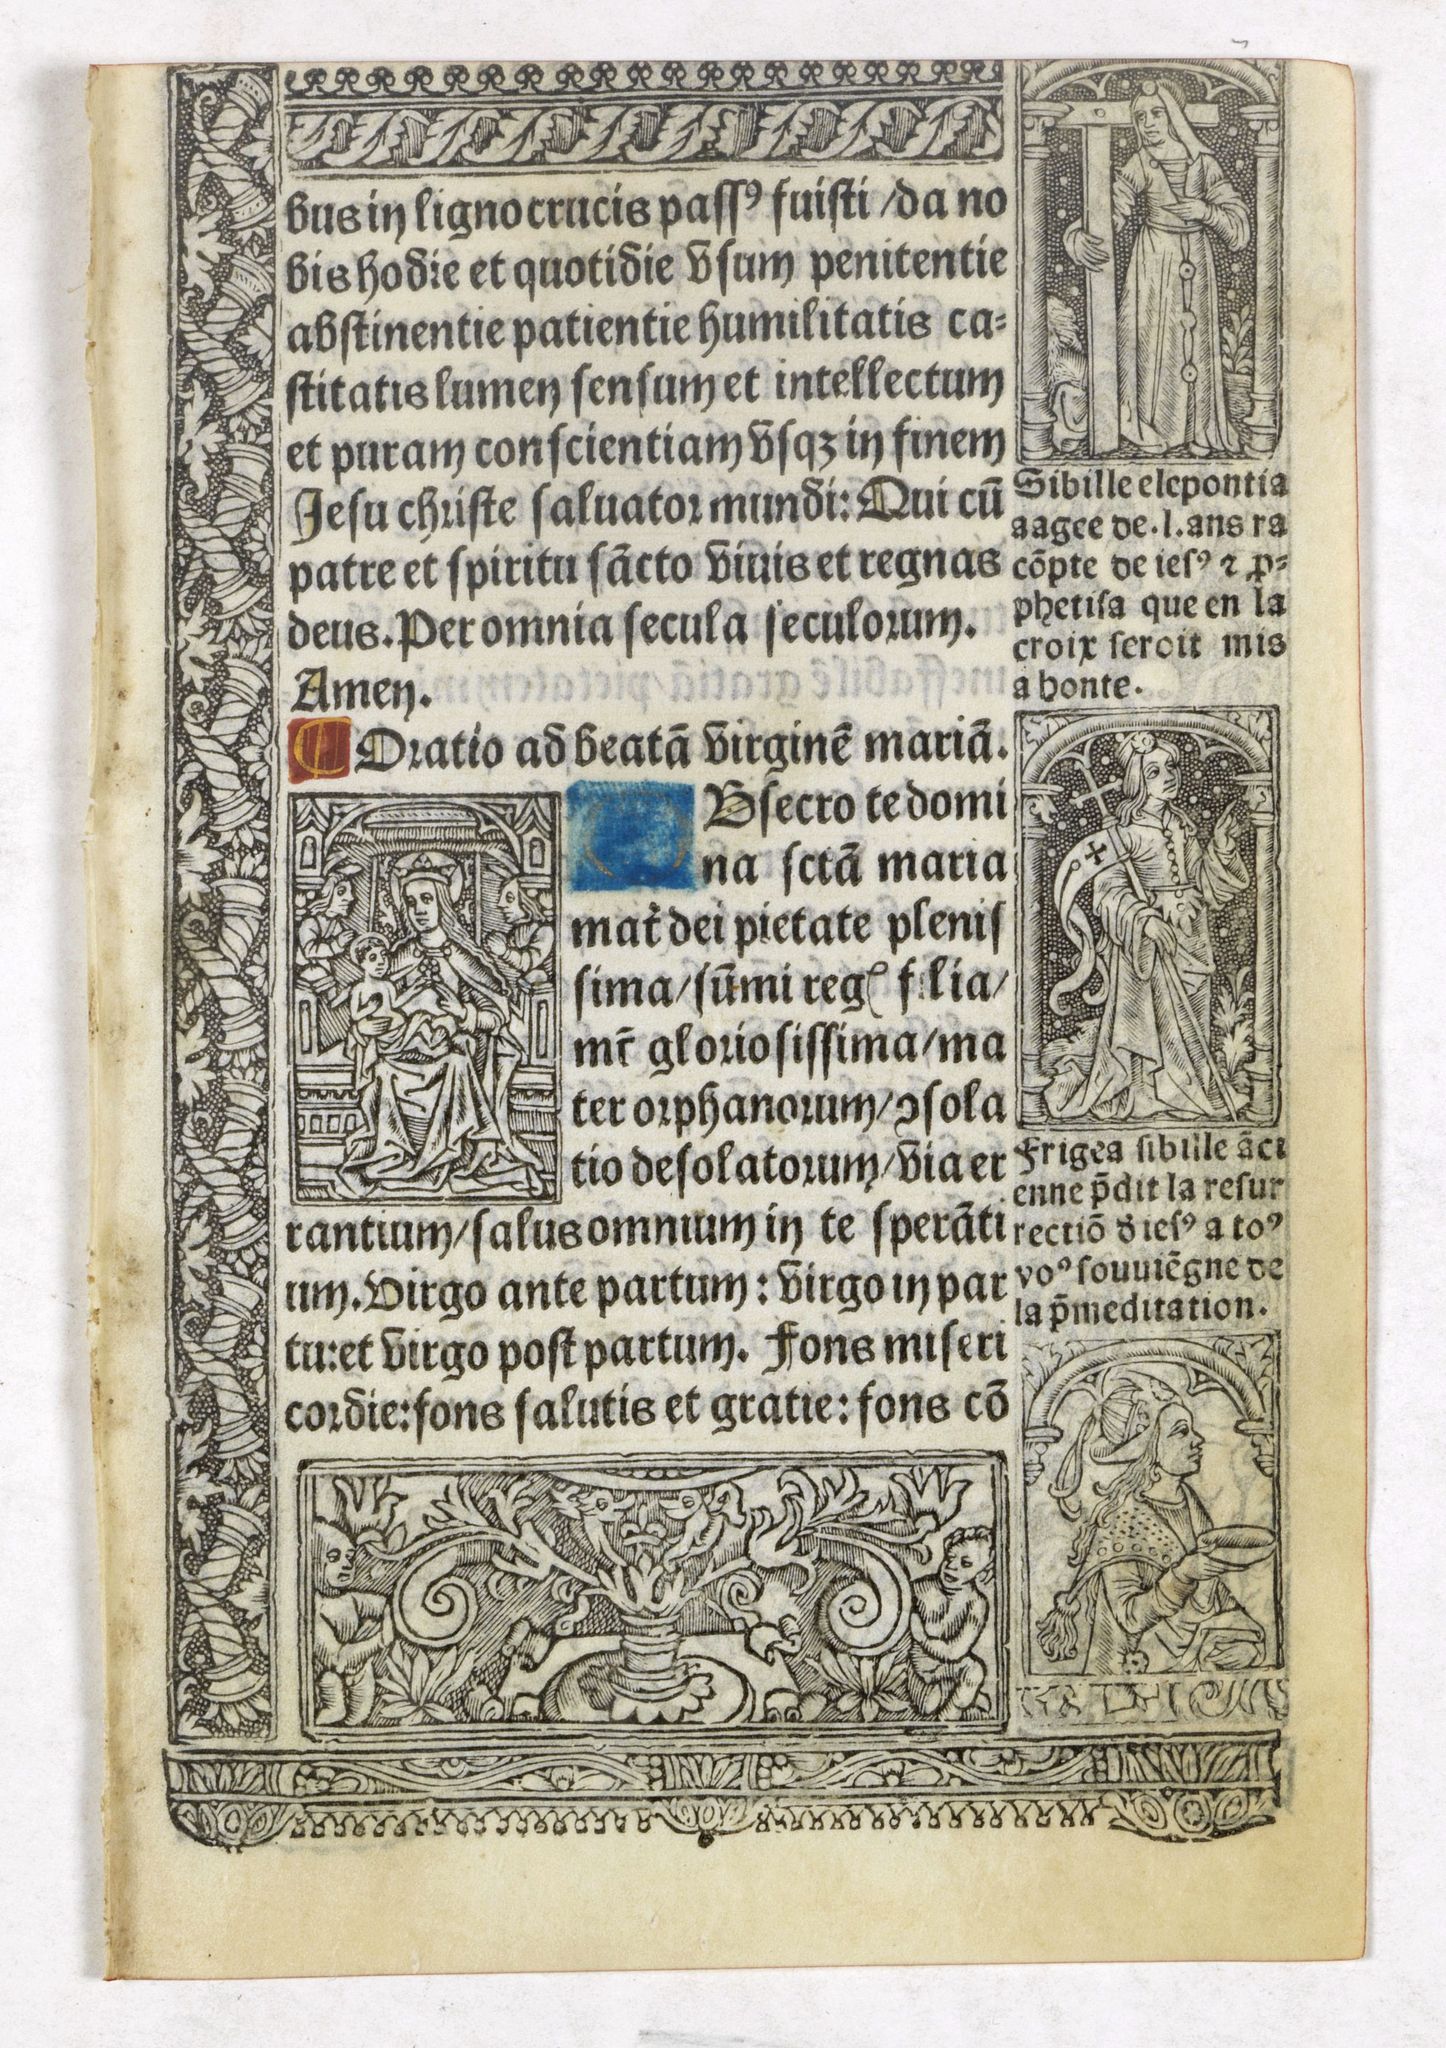 bus in ligno crucis passꝰ fuisti / da no
bis hodie et quotidie vsum penitentie
abstinentie patientie humilitatis ca-
stitatis lumen sensum et intellectum
et puram conscientiam vsqꝫ in finem
Jesu christe saluator mundi: Qui cū
patre et spiritu sācto viuis et regnas
deus. Per omnia secula seculorum.
Amen.
Oratio ad beatā virginē mariā.
Bsecro te domi
na sctā maria
mat̄ dei pietate plenis
sima / sūmi reg f lia /
mr̄ gloriosissima / ma
ter orphanorum / ꝯsola
tio desolatorum / via er
rantium / salus omnium in te sperāti
um. Virgo ante partum: virgo in par
tu: et virgo post partum. Fons miseri
cordie: fons salutis et gratie: fons cō
Sibille elepontia
aagee de .l. ans ra
cōpte de iesꝰ ⁊ ꝓ-
phetisa que en la
croix seroit mis
a honte.
Frigea sibille āci
enne p̄dit la resur
rectiō d̄ iesꝰ a toꝰ
voꝰ souuiēgne de
la p̄meditation.